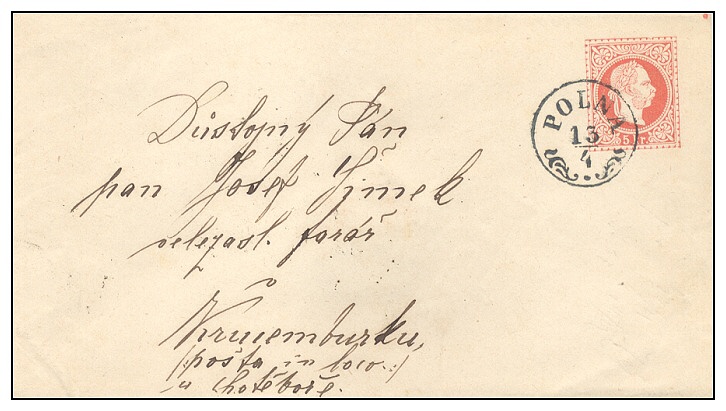 POLNA
13
4
5 kr.
Důstojný Pán
pan Josef Šimek
velezasl. farář
v
Krucemburku,
/: pošta in loco :/
u Chotěboře.